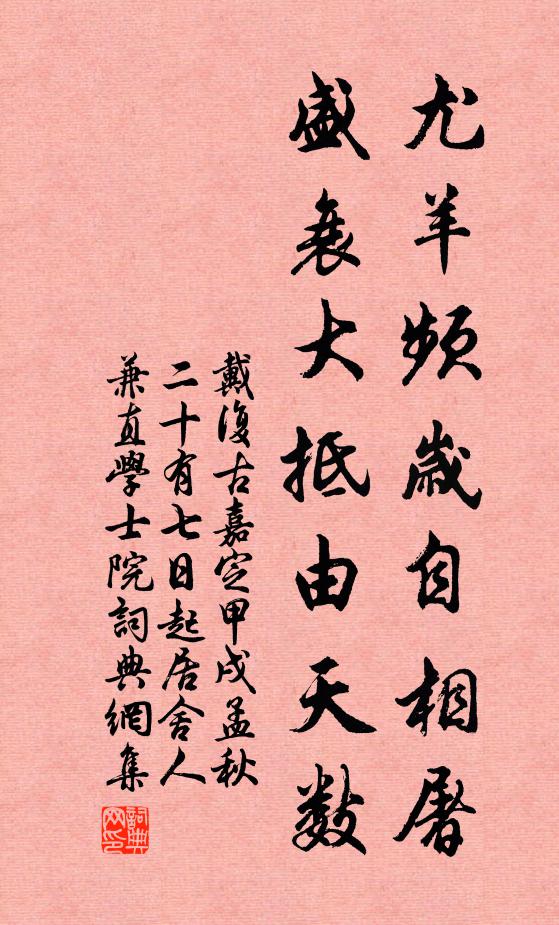 尤羊頻歲自相屠
盛衰大抵由天數
戴復古嘉定甲戌孟秋
二十有七日起居舍人
兼直學士院詞典網集
詞典
网印